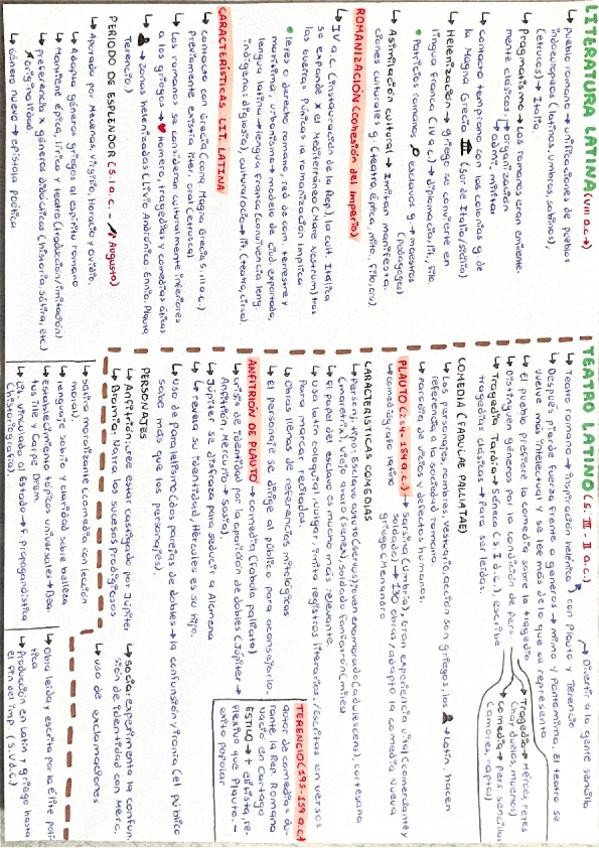 LITERATURA LATINA (VIII a.C →)
↳ pueblo romano → unificaciones de pueblos
indoeuropeos (latinos, umbros, sabinos),
(etruscos) → Italia.
↳ Pragmatismo → Los romanos eran eminente-
mente clásicos. ↳ organización
↳ admi. militar
↳ contacto temprano con las colonias g. de
la Magna Grecia (Sur de Italia/Sicilia)
↳ Helenización → griego se convierte en
lingua franca (IV a.c) → diplomacia, lit, filo.
• Patricios romanos, esclavos g → maestros
(Pedagogía)
↳ Asimilación cultural → Imitan manifesta-
ciones culturales g. (teatro, épica, mito, filo, ora)
ROMANIZACIÓN (cohesión del Imperio)
↳ IV a.c (instauración de la Rep), la cult. Itálica
se expande x el Mediterráneo (Mare Nostrum) tras
las Guerras Púnicas la romanización implica
• leyes o derecho romano, red de com. terrestre y
marítima, urbanismo → modelo de ciud exportada,
lengua latina → lengua franca (convivencia leng.
indígena; diglosia), cultura/ocio → lit. (teatro, circo)
CARACTERÍSTICAS LIT. LATINA
↳ contacto con Grecia (conq. Magna Grecia S. III a.c.)
Previamente existía liter. oral (etrusca)
↳ Los romanos se consideran culturalmente inferiores
a los griegos → ♥ Homero, tragedias y comedias áticas
↳ zonas helenizadas (Livio Andrónico Ennio, Plauto
Terencio)
PERIODO DE ESPLENDOR (S. I a.c. - Augusto)
↳ Apoyado por Mecenas, Virgilio, Horacio y Ovidio.
↳ Adapta géneros griegos al espíritu romano
↳ Mantiene épica, lírica y teatro (traducción/imitación)
↳ Preferencia x géneros didácticos (historia, sátira, etc)
originalidad
↳ Género nuevo → epístola poética
TEATRO LATINO (S. III - II a.C.)
→ Divertir a la gente sencilla
↳ Teatro romano → inspiración helénica, con Plauto y Terencio
↳ Después, pierde fuerza frente a géneros → mimo y Pantomima. El teatro se
vuelve más intelectual y se lee más de lo que se representa
↳ El público prefiere la comedia sobre la tragedia
↳ Distinguen géneros por la condición de pers.
→ Tragedia → Héroes, reyes
(hay duelos, muertes)
→ comedia → pers. sencillos
(amores, raptos)
↳ Tragedia Tardía → Séneca (S. I d.c.), escribe
tragedias clásicas → Para ser leídas.
COMEDIA (FABULAE PALLIATAE)
↳ Los personajes, nombres, vestuario, acción son griegos, los → Latín, hacen
referencia a sociedad romana
↳ Parodia de vicios y defecto humanos.
PLAUTO (254-184 a.c.) → Sarsina (Umbría), gran experiencia vital (comerciante y
soldado) → 130 obras, adapto la comedia nueva
↳ comediógrafo latino griega (Menandro
CARACTERISTICAS COMEDIAS
↳ Persenj. tipo: Esclavo astuto (servus), joven enamorado (adulescens), cortesana
(meretrix), viejo avaro (senex), soldado fanfarrón (miles)
↳ El papel del esclavo es mucho más relevante
↳ Usa latín coloquial, vulgar, imita registros literarios, / Escritas en versos
Para marcar recitados.
↳ Obras llenas de referencias mitológicas
↳ El personaje se dirige al público para aconsejarlo.
ANFITRIÓN DE PLAUTO → comedia (fabula palliata)
↳ crisis de identidad por la aparición de dobles (Júpiter →
Anfitrión, Mercurio → Sosia)
↳ Júpiter se disfraza para seducir a Alcmena
↳ revela su identidad, Hércules es su hijo.
↳ Uso de paralelismo (dos parejas de dobles → la confusión / ironía (el público
sabe más que los personajes).
TERENCIO (195-159 a.c)
autor de comedias du-
rante la Rep. Romana
nació en Cartago
ESTILO → + elitista, re-
flexivo que Plauto. -
éxito popular
PERSONAJES
↳ Anfitrión: cree estar castigado por Júpiter
↳ Bromia: Narra los sucesos prodigiosos
↳ Sosia: experimenta la confun-
sión de identidad con Merc.
↳ sátira moralizante (comedia con lección
moral).
↳ lenguaje subito y claridad sobre belleza
↳ Establecimiento tópicos universales → Bea-
tus Ille y Carpe Diem.
↳ Lit. vinculada al Estado → f. propagandística
(historiografía).
↳ uso de exclamadores
↳ Obra leída y escrita por la élite polí-
tica
↳ Producción en Latín y griego hasta
el fin del imp (S. V d.C)